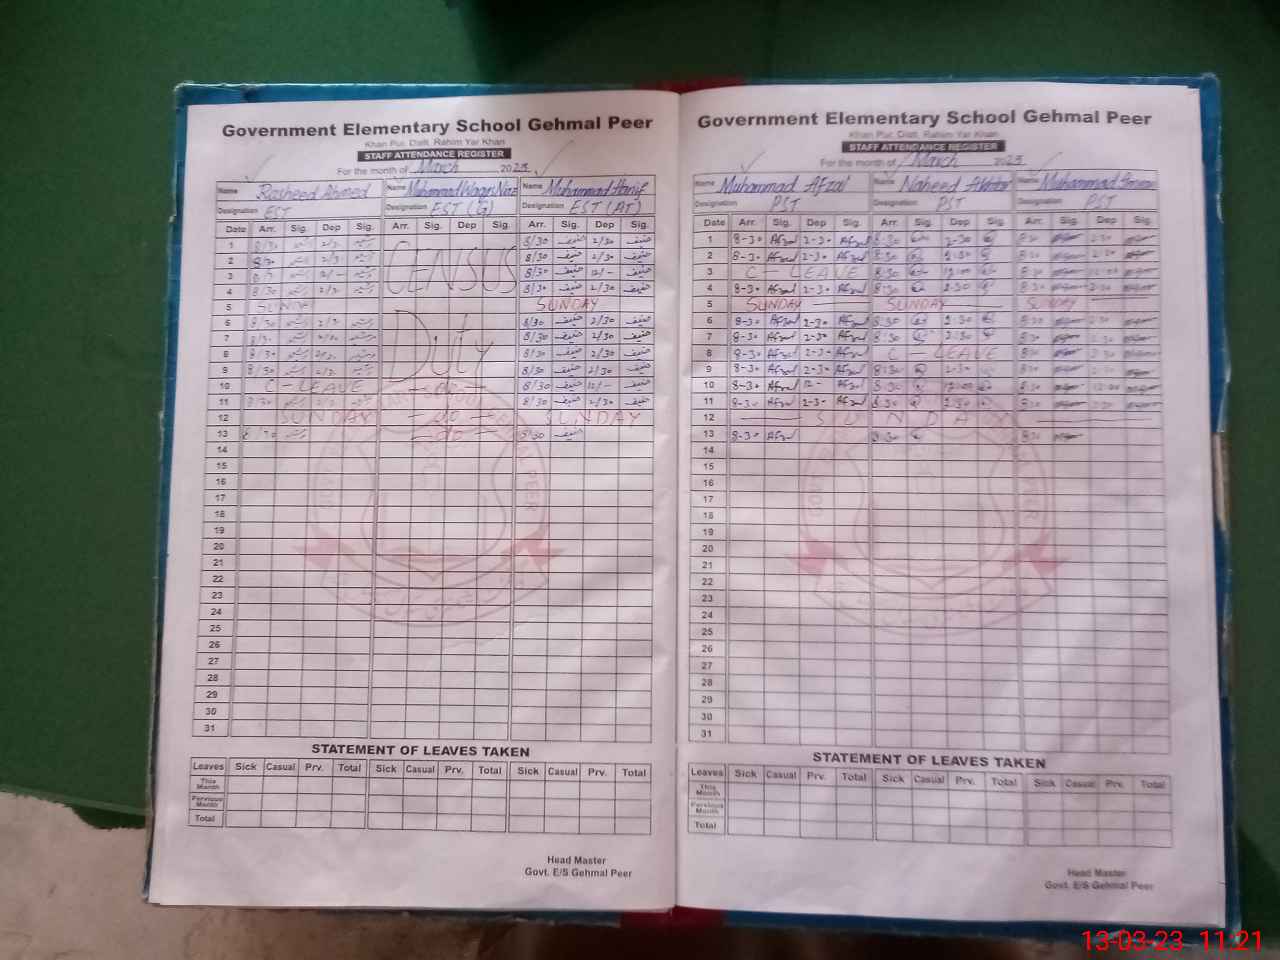 Government Elementary School Gehmal Peer
Khan Pur, Distt. Rahim Yar Khan
STAFF ATTENDANCE REGISTER
For the month of March 2023
Name Rasheed Ahmed Name Muhammad Waqas Niaz Name Muhammad Hanif
Designation EST Designation EST (G) Designation EST (AT)
Date Arr. Sig. Dep Sig. Arr. Sig. Dep Sig. Arr. Sig. Dep Sig.
1 8/30 2/30 CENSUS 8/30 حنیف 2/30 حنیف
2 8/30 2/30 8/30 حنیف 2/30 حنیف
3 12/- 8/30 حنیف 12/- حنیف
4 8/30 2/30 8/30 حنیف 2/30 حنیف
5 SUNDAY SUNDAY
6 8/30 2/30 Duty 8/30 حنیف 2/30 حنیف
7 8/30 2/30 8/30 حنیف 2/30 حنیف
8 8/30 2/30 8/30 حنیف 2/30 حنیف
9 8/30 2/30 8/30 حنیف 2/30 حنیف
10 C - LEAVE - do - 8/30 حنیف 12/- حنیف
11 8/30 2/30 8/30 حنیف 2/30 حنیف
12 SUNDAY - do - SUNDAY
13 8/30 - do - 8/30 حنیف
14
15
16
17
18
19
20
21
22
23
24
25
26
27
28
29
30
31
STATEMENT OF LEAVES TAKEN
Leaves Sick Casual Prv. Total Sick Casual Prv. Total Sick Casual Prv. Total
This Month
Pervious Month
Total
Head Master
Govt. E/S Gehmal Peer
Government Elementary School Gehmal Peer
Khan Pur, Distt. Rahim Yar Khan
STAFF ATTENDANCE REGISTER
For the month of March 2023
Name Muhammad Afzal Name Naheed Akhtar Name Muhammad
Designation PST Designation PST Designation PST
Date Arr. Sig. Dep Sig. Arr. Sig. Dep Sig. Arr. Sig. Dep Sig.
1 8-30 Afzal 2-30 Afzal 8:30 2:30 8:30 2:30
2 8-30 Afzal 2-30 Afzal 8:30 2:30 8:30 2:30
3 C - LEAVE 8:30 12:00 8:30 12:00
4 8-30 Afzal 2-30 Afzal 8:30 2:30 8:30 2:30
5 SUNDAY SUNDAY SUNDAY
6 8-30 Afzal 2-30 Afzal 8:30 2:30 8:30 2:30
7 8-30 Afzal 2-30 Afzal 8:30 2:30 8:30 2:30
8 8-30 Afzal 2-30 Afzal C - LEAVE 8:30 2:30
9 8-30 Afzal 2-30 Afzal 8:30 2:30 8:30 2:30
10 8-30 Afzal 12- Afzal 8:30 12:00 8:30 12:00
11 8-30 Afzal 2-30 Afzal 8:30 2:30 8:30 2:30
12 SUNDAY
13 8-30 Afzal 8:30 8:30
14
15
16
17
18
19
20
21
22
23
24
25
26
27
28
29
30
31
STATEMENT OF LEAVES TAKEN
Leaves Sick Casual Prv. Total Sick Casual Prv. Total Sick Casual Prv. Total
This Month
Pervious Month
Total
Head Master
Govt. E/S Gehmal Peer
13-03-23 11:21